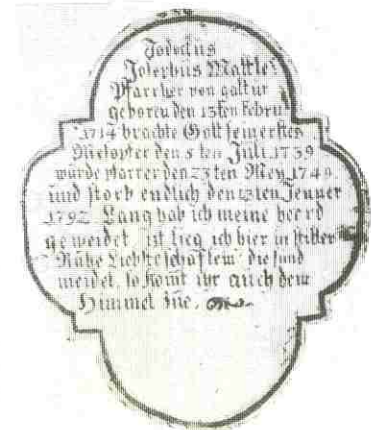 Jodockus
Joserbus Mattle
Pfarrher von galtur
geboren den 13ten Febru
1714 brachte Gott sein erstes
Messopfer den 5 ten Juli 1739
wurde pfarrer den 23ten Mey 1749.
und storb endlich den 12ten Jenner
1792 Lang hab ich meine heerd
geweidet izt lieg ich hier in stiller
Ruhe Liebste schäflein die sünd
meidet, so komt ihr auch dem
Himmel zue.